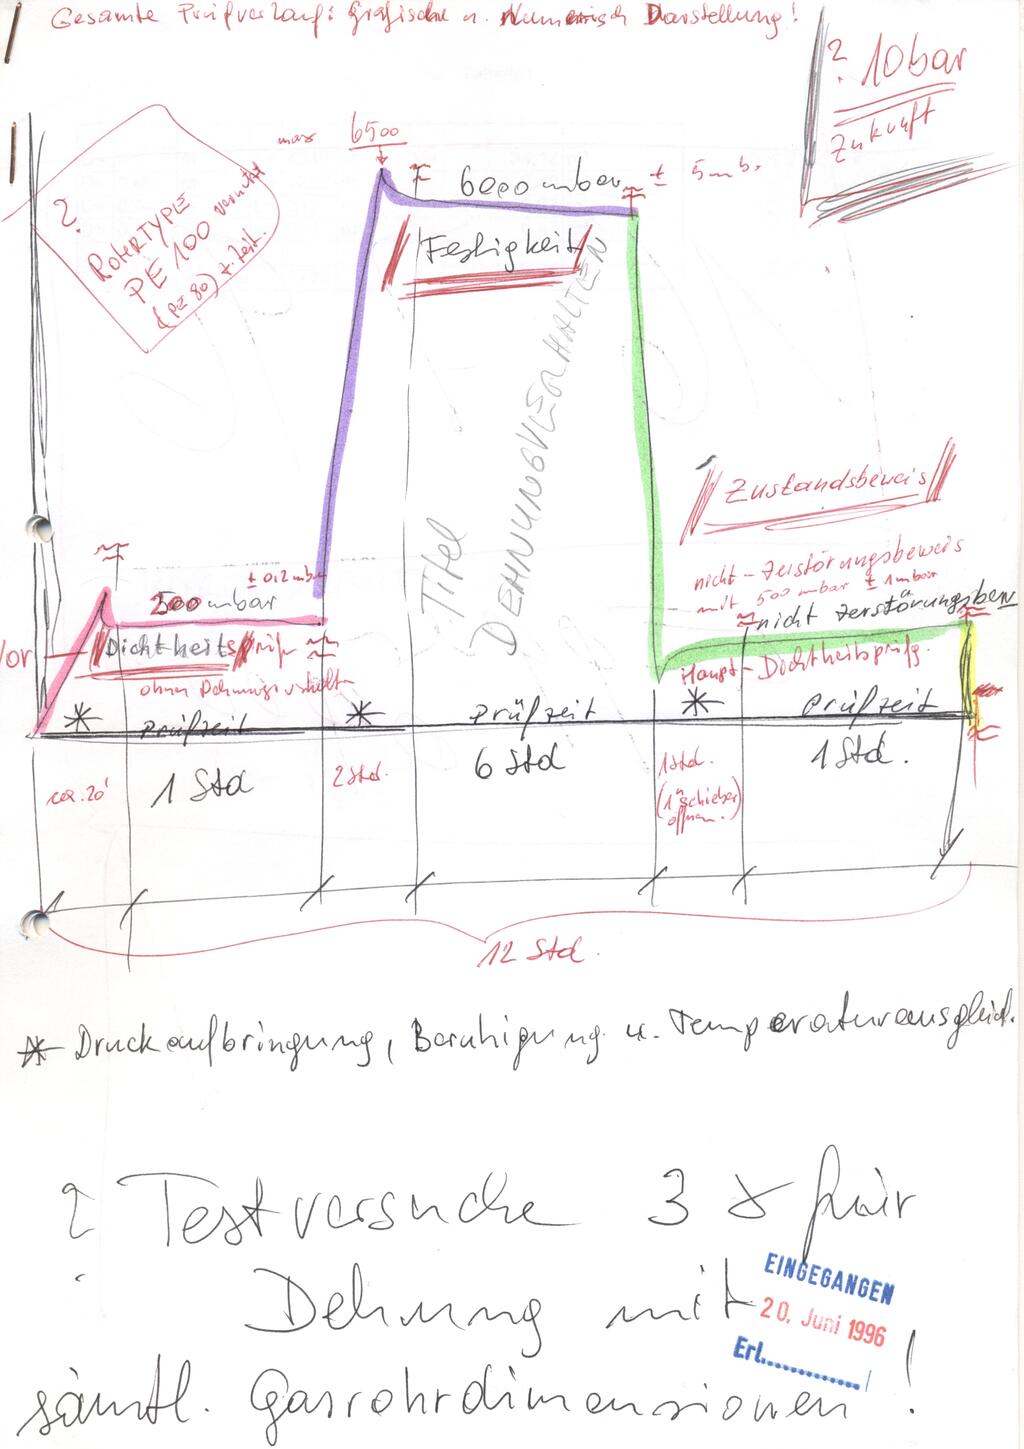 Gesamte Prüfverlauf: Grafische u. Numerisch Darstellung!
? 10bar
Zukunft
max 6500
6000 mbar ± 5 mb.
?
Roter TYPE
PE 100
(PE 80) z. Zeit.
Festigkeit
Titel
DEHNUNGVERHALTEN
Zustandsbeweis
nicht-Zerstörungsbeweis
mit 500 mbar ± 1mbar
nicht zerstörungsbew
± 0,2 mbar
500 mbar
Vor
Dichtheitsprüf
Haupt-Dichtheitsprüfg.
ohne Dehnungsverhalt
* Prüfzeit * Prüfzeit * Prüfzeit
ca. 20' 1 Std 2 Std. 6 Std 1 Std. 1 Std.
(1" Schieber
öffnen.)
12 Std.
* Druckaufbringung, Beruhigung u. Temperaturausgleich.
? Testversuche 3 x für
Dehnung mit
sämtl. Gasrohrdimensionen!
EINGEGANGEN
20. Juni 1996
Erl.............